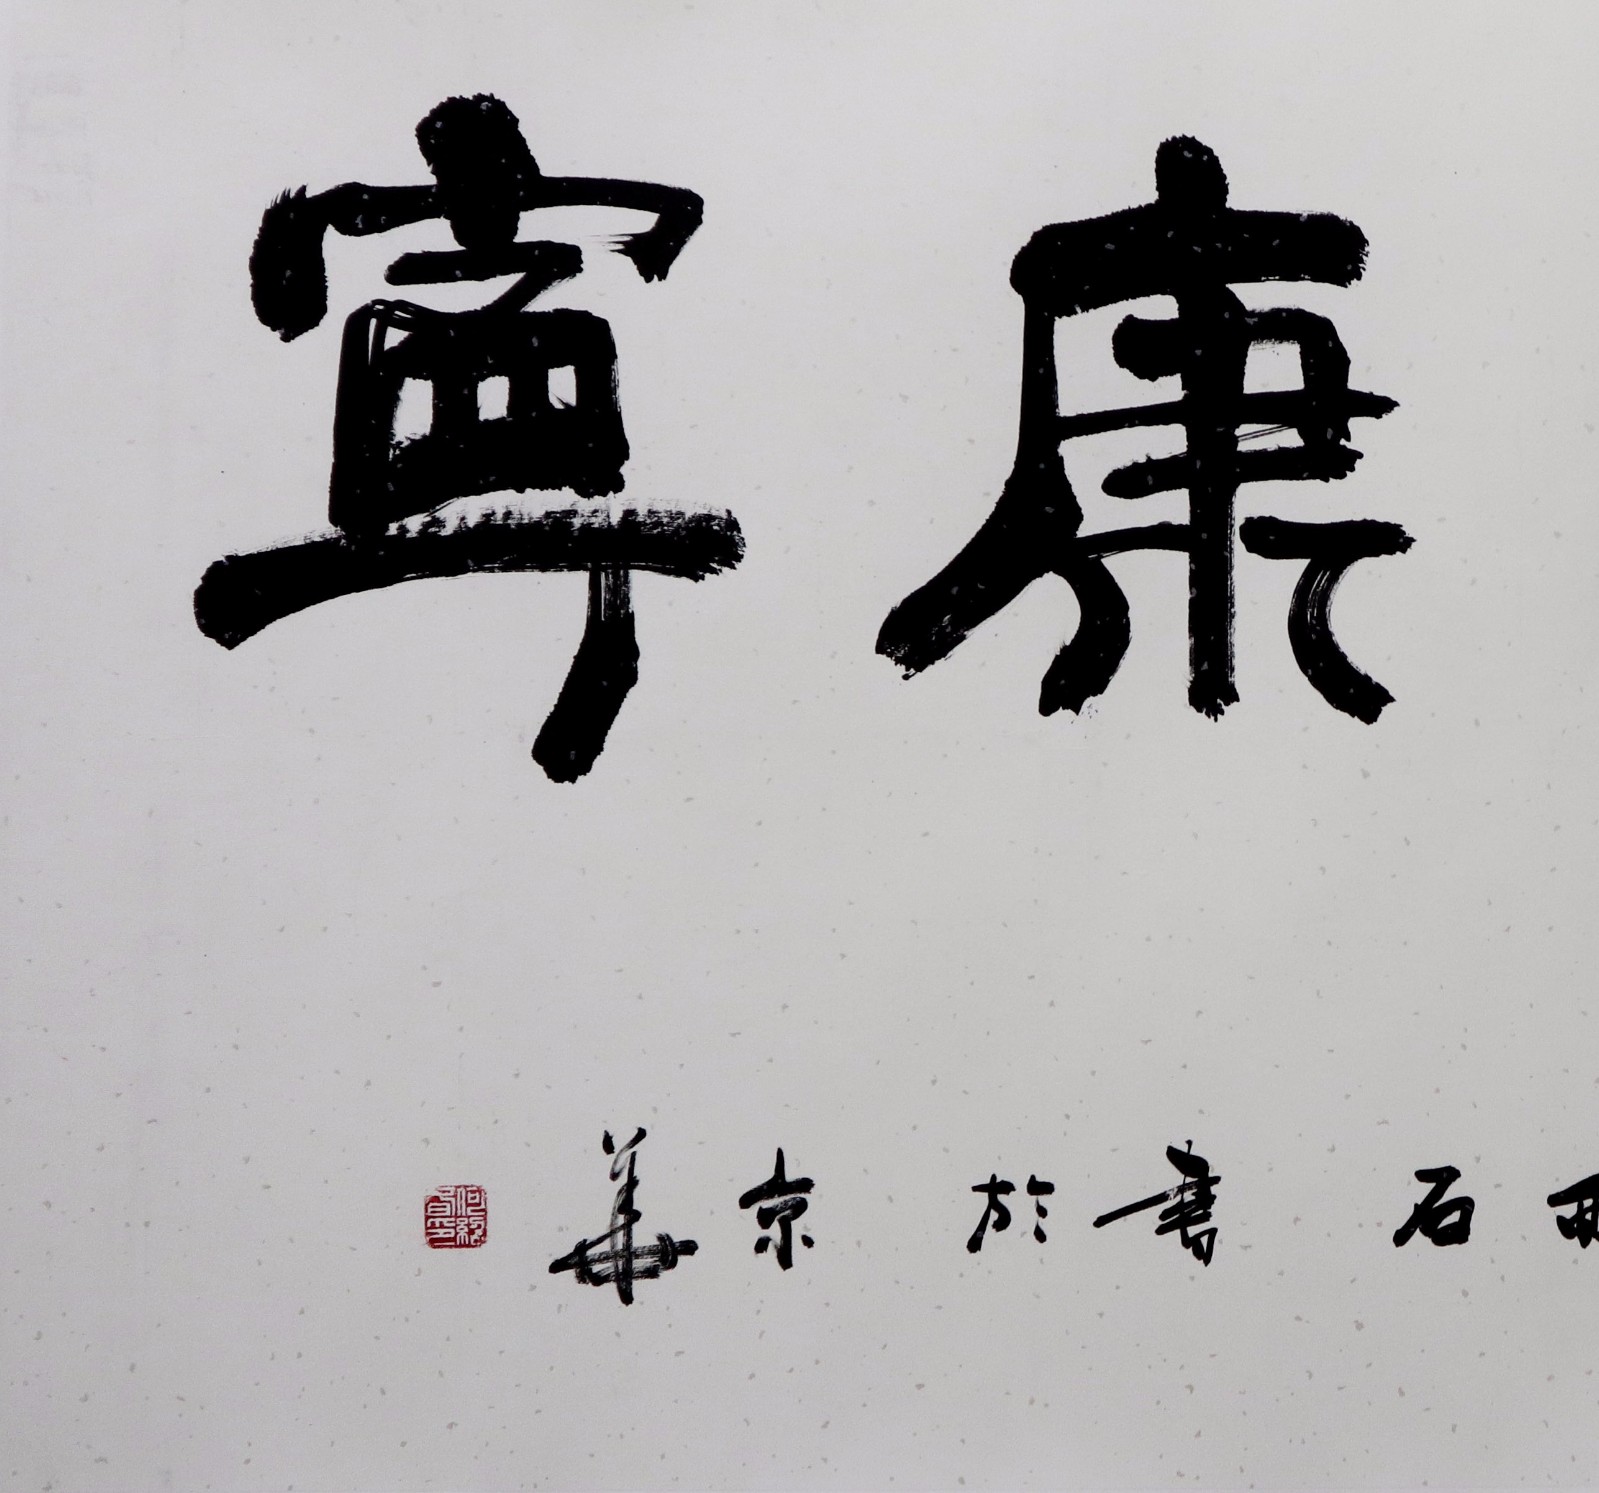 康寧
石書於京華